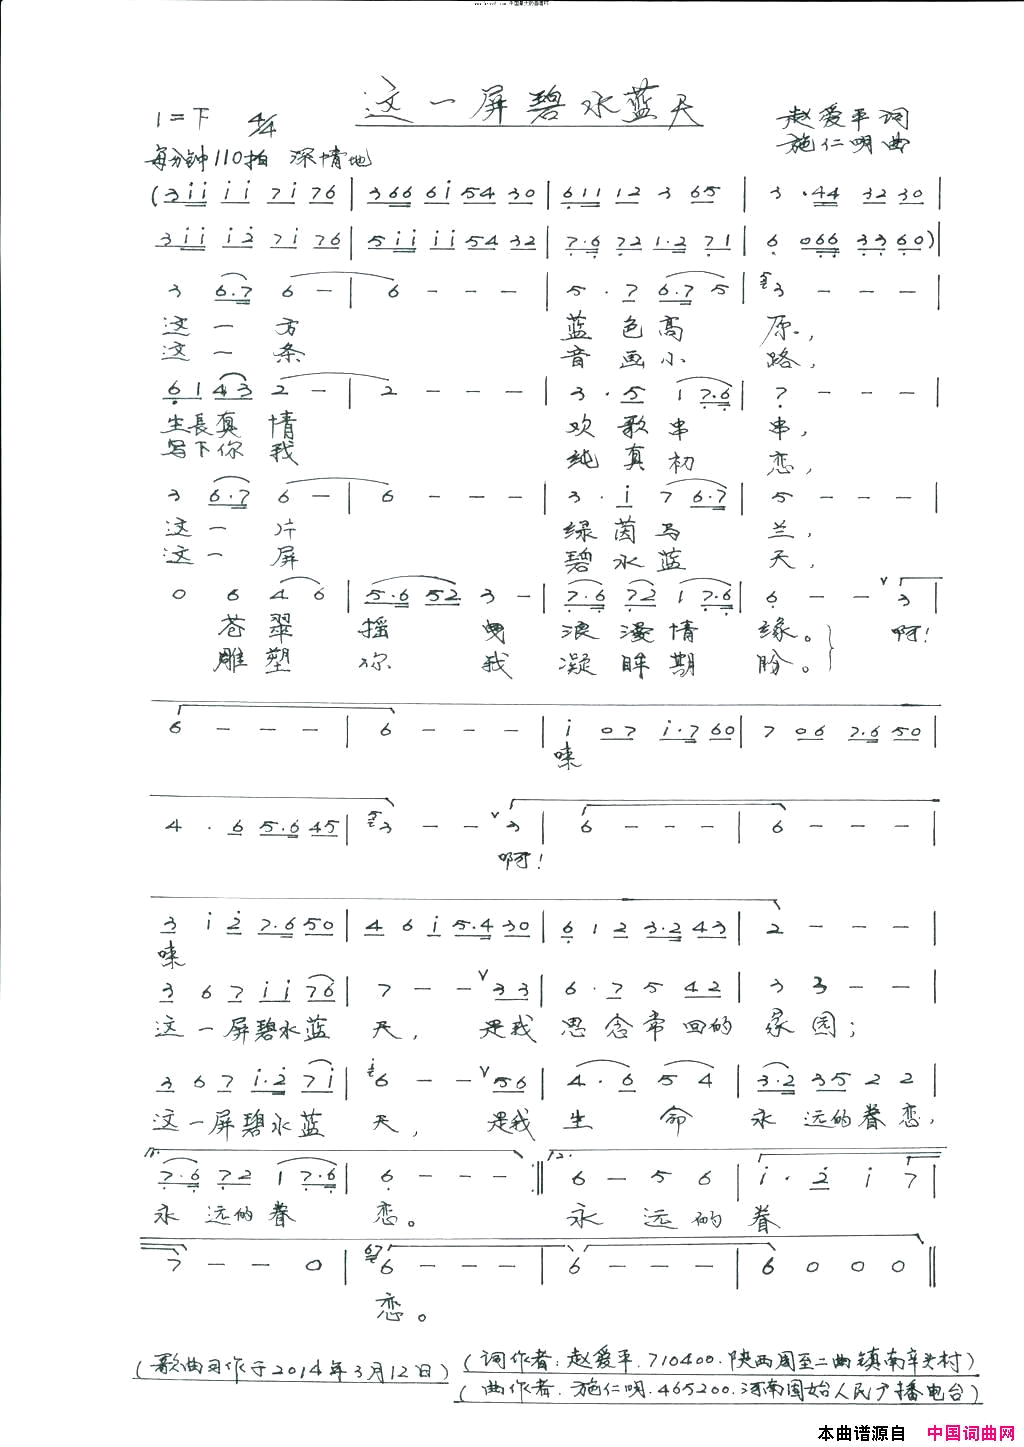 这一屏碧水蓝天
1=F 4/4
赵爱平词
施仁明曲
每分钟110拍 深情地
(3ii ii 7i 76 | 366 6i 54 30 | 611 12 3 65 | 3 ·44 32 30 |
3ii i2 7i 76 | 5ii ii 54 32 | 7·6 72 1·2 71 | 6 066 33 60) |
3 6·7 6 – | 6 – – – | 5 · 7 6·7 5 | 3 – – – |
这一方 蓝色高原,
这一条 音画小路,
61 43 2 – | 2 – – – | 3 · 5 1 7·6 | 7 – – – |
生長真情 欢歌串串,
写下你我 纯真初恋,
3 6·7 6 – | 6 – – – | 3 · i 7 6·7 | 5 – – – |
这一片 绿茵马兰,
这一屏 碧水蓝天,
0 6 4 6 | 5·6 52 3 – | 7·6 72 1 7·6 | 6 – – 3 |
苍翠摇曳浪漫情缘。 啊!
雕塑你我凝眸期盼。
6 – – – | 6 – – – | i 07 i·7 60 | 7 06 7·6 50 |
唻
4 · 6 5·6 45 | 3 – – 3 | 6 – – – | 6 – – – |
啊!
3 i 2 7·6 50 | 4 6 i 5·4 30 | 6 1 2 3·2 43 | 2 – – – |
唻
3 6 7 ii 76 | 7 – – 33 | 6 · 7 5 42 | 3 3 – – |
这一屏碧水蓝天, 是我思念常回的家园;
3 6 7 i·2 7i | 6 – – 56 | 4 · 6 5 4 | 3·2 35 2 2 |
这一屏碧水蓝天, 是我生命永远的眷恋,
1. 7·6 72 1 7·6 | 6 – – – :|| 2. 6 – 5 6 | i · 2 i 7 |
永远的眷恋。 永远的眷
7 – – 0 | 67 6 – – – | 6 – – – | 6 0 0 0 ||
恋。
(歌曲习作于2014年3月12日)
(词作者:赵爱平.710400.陕西周至二曲镇南辛头村)
(曲作者.施仁明.465200.河南固始人民广播电台)
本曲谱源自 中国词曲网